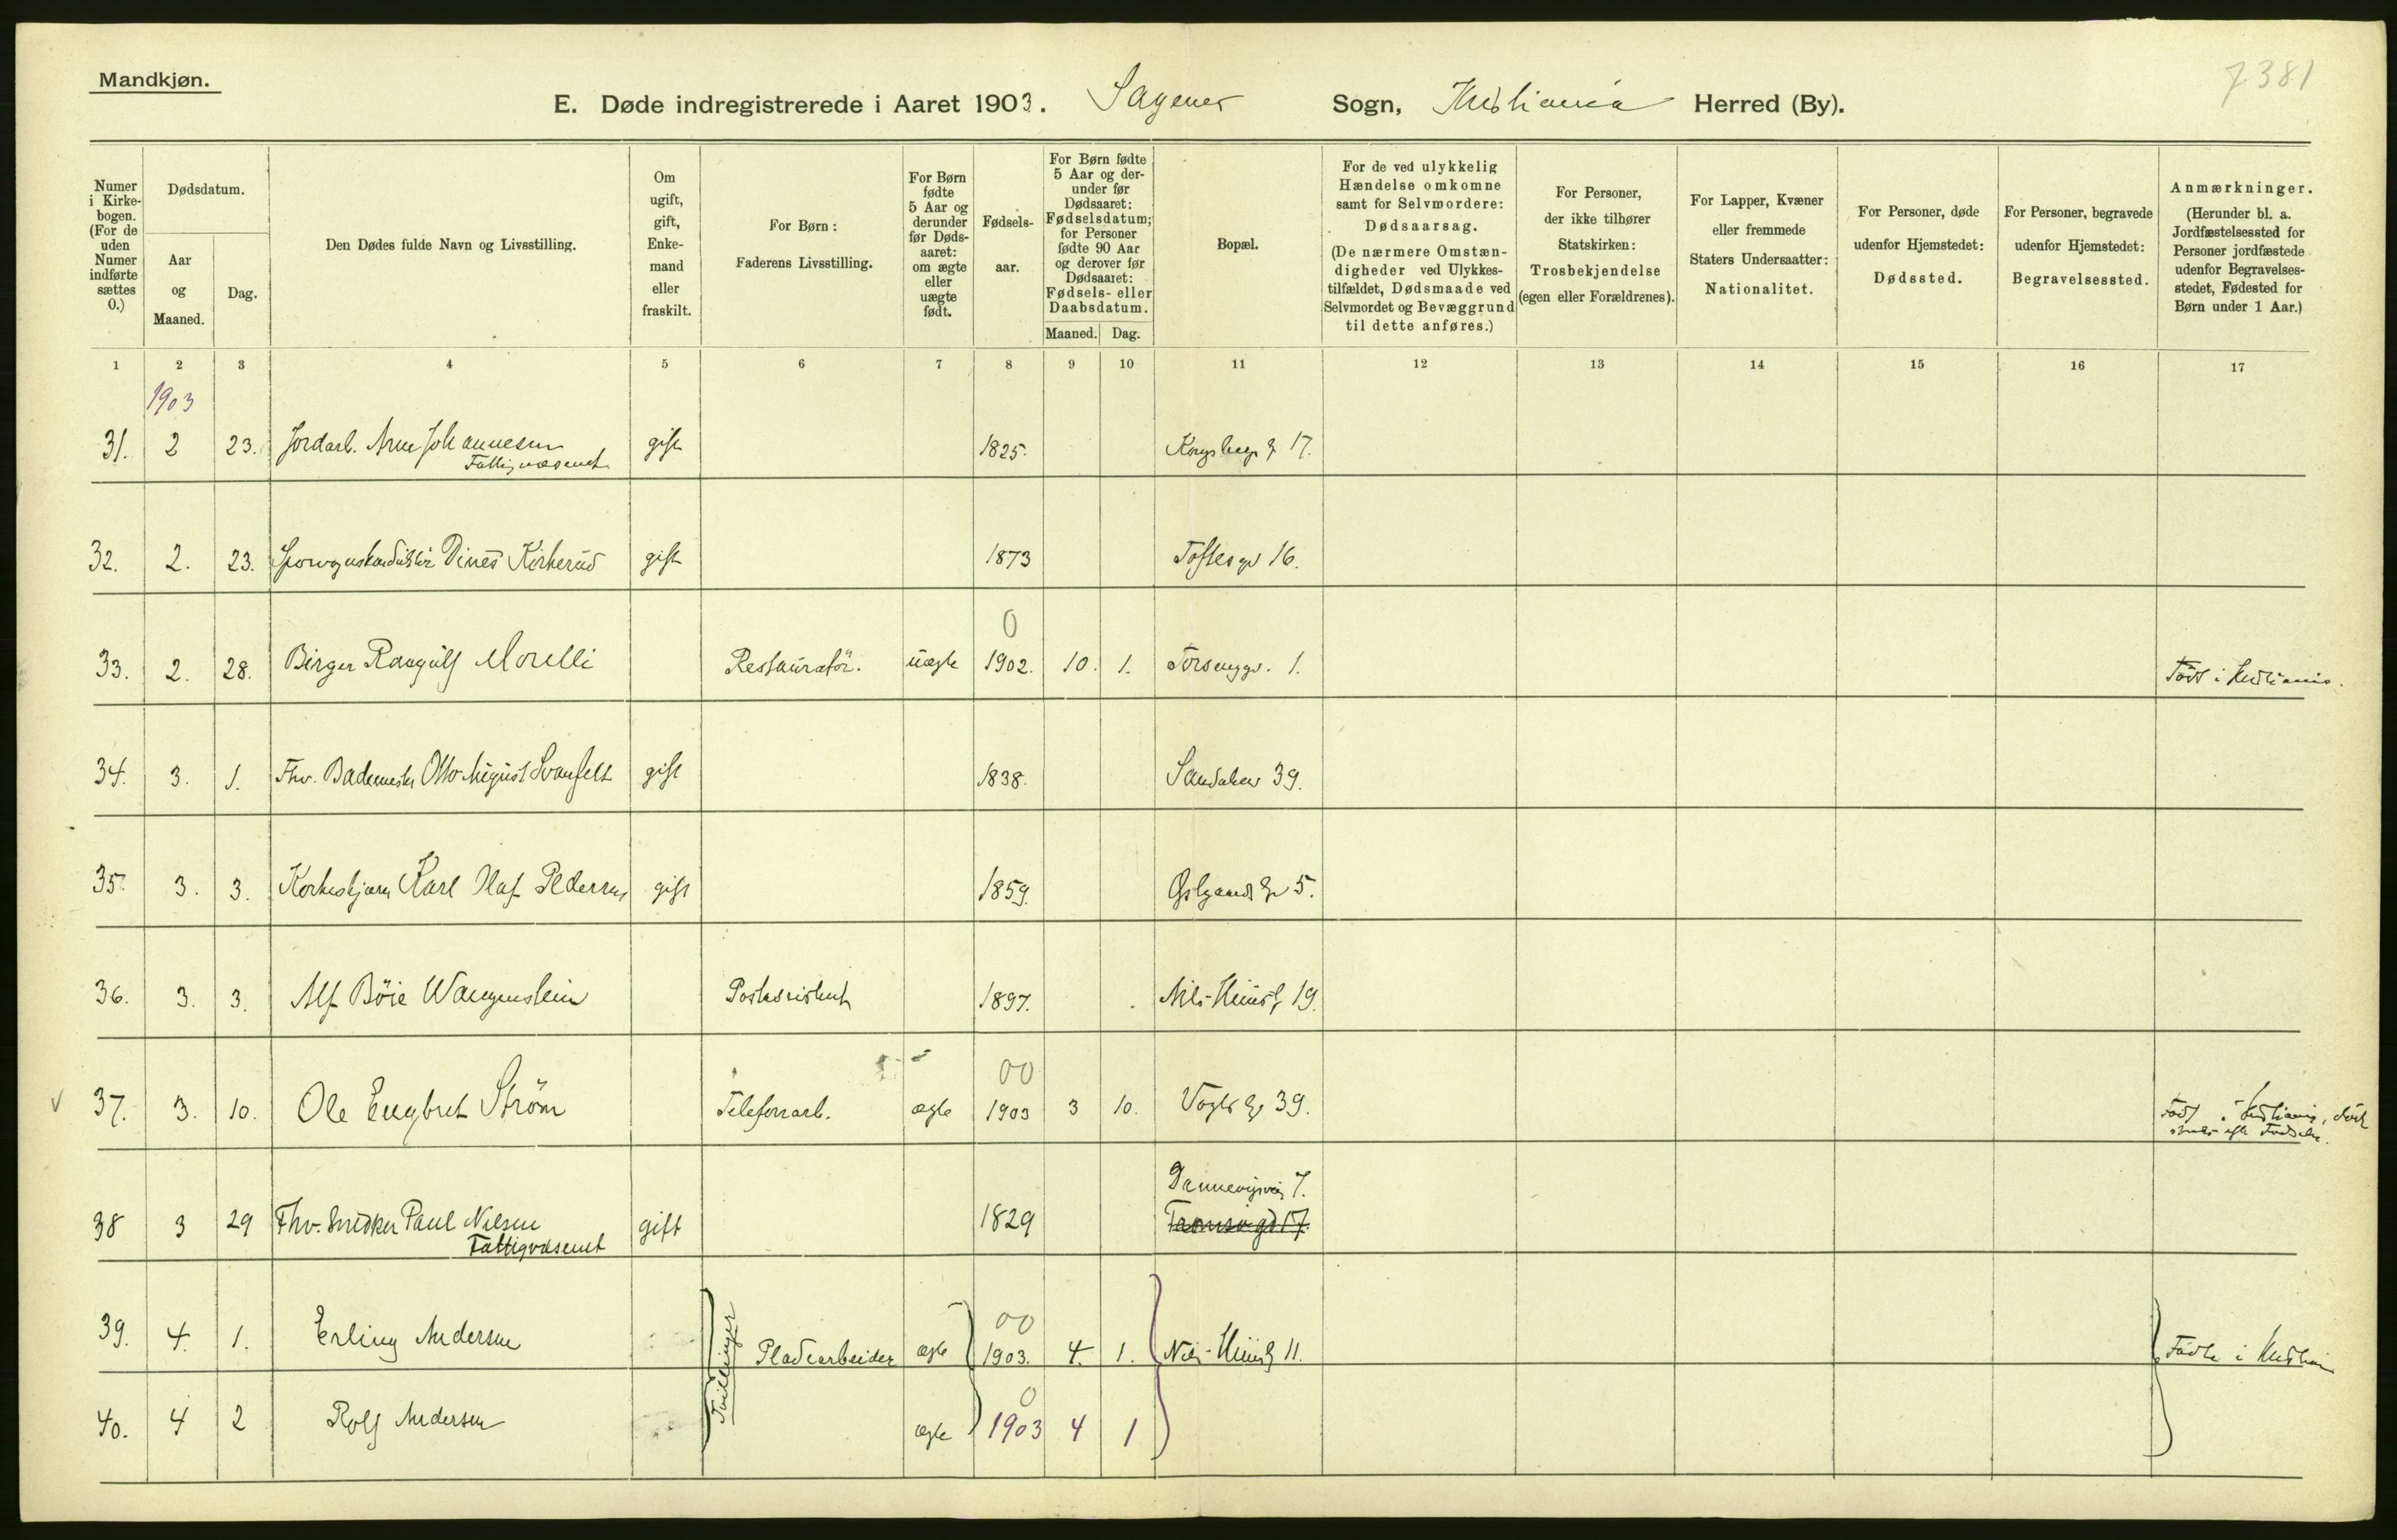 Mandkjøn.
7381
E. Døde indregistrerede i Aaret 1903. Sagenes Sogn, Kristiania Herred (By).
Numer i Kirkebogen. (For de uden Numer indførte sættes 0.)
Dødsdatum.
Aar og Maaned.
Dag.
Den Dødes fulde Navn og Livsstilling.
Om ugift, gift, Enkemand eller fraskilt.
For Børn: Faderens Livsstilling.
For Børn fødte 5 Aar og derunder før Dødsaaret: om ægte eller uægte født.
Fødselsaar.
For Børn fødte 5 Aar og derunder før Dødsaaret: Fødselsdatum; for Personer fødte 90 Aar og derover før Dødsaaret: Fødsels- eller Daabsdatum.
Maaned. Dag.
Bopæl.
For de ved ulykkelig Hændelse omkomne samt for Selvmordere: Dødsaarsag. (De nærmere Omstændigheder ved Ulykkestilfældet, Dødsmaade ved Selvmordet og Bevæggrund til dette anføres.)
For Personer, der ikke tilhører Statskirken: Trosbekjendelse (egen eller Forældrenes).
For Lapper, Kvæner eller fremmede Staters Undersaatter: Nationalitet.
For Personer, døde udenfor Hjemstedet: Dødssted.
For Personer, begravede udenfor Hjemstedet: Begravelsessted.
Anmærkninger. (Herunder bl. a. Jordfæstelsessted for Personer jordfæstede udenfor Begravelsesstedet, Fødested for Børn under 1 Aar.)
1 2 3 4 5 6 7 8 9 10 11 12 13 14 15 16 17
1903
31. 2 23. Jordarb. Arne Johannesen gift 1825.  17.
Fattigvæsenet
32. 2. 23. Sporvognskonduktör Dines Kirkerud gift 1873 Toftesgd 16.
0
33. 2. 28. Birger Rangulf Morelli Restauratör. uægte 1902. 10. 1. 1. Född i Kristiania.
34. 3. 1. Fhv. Bademester Otto August Svanfelt gift 1838. 39.
35. 3. 3. Korkeskjærer Karl Olaf Pedersen gift 1859. 5.
36. 3. 3. Alf Böie Wangenstein Postassistent 1897. Nils Huusg 19.
00
37. 3. 10. Ole Engbret Ström Telefonarb. ægte 1903 3 10. Vogtsg 39. Född i Kristiania, död
strax efter Födselen.
Dannevigsvei 7.
38 3 29 Fhv. Snedker Paul Nilsen gift 1829 Tromsøgd 17.
Fattigvæsenet
00
39. 4. 1. Erling Andersen Tvillinger Pladearbeider ægte 1903. 4. 1. Nils Huusg 11. Födte i Kristiania
0
40. 4 2 Rolf Andersen ægte 1903 4 1